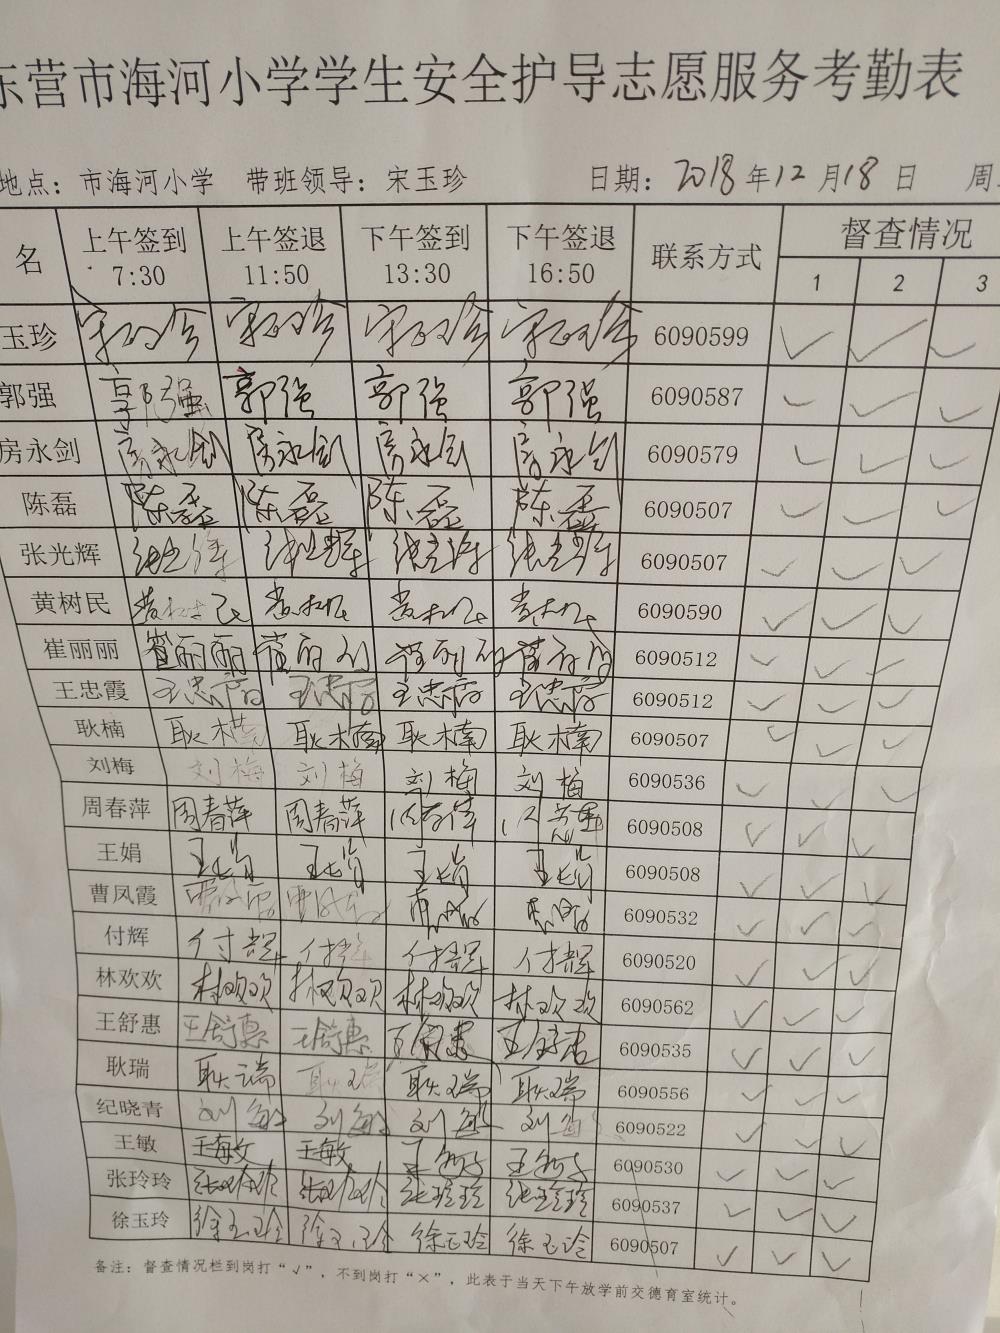 东营市海河小学学生安全护导志愿服务考勤表
地点：市海河小学 带班领导：宋玉珍 日期：2018年12月18日 周
名 上午签到 7:30 上午签退 11:50 下午签到 13:30 下午签退 16:50 联系方式 督查情况 1 2 3
玉珍 宋玉珍 宋玉珍 宋玉珍 宋玉珍 6090599 ✓ ✓ ✓
郭强 郭强 郭强 郭强 郭强 6090587 ✓ ✓ ✓
房永剑 房永剑 房永剑 房永剑 房永剑 6090579 ✓ ✓ ✓
陈磊 陈磊 陈磊 陈磊 陈磊 6090507 ✓ ✓ ✓
张光辉 张光辉 张光辉 张光辉 张光辉 6090507 ✓ ✓ ✓
黄树民 黄树民 黄树民 黄树民 黄树民 6090590 ✓ ✓ ✓
崔丽丽 崔丽丽 崔丽丽 崔丽丽 崔丽丽 6090512 ✓ ✓ ✓
王忠霞 王忠霞 王忠霞 王忠霞 王忠霞 6090512 ✓ ✓ ✓
耿楠 耿楠 耿楠 耿楠 耿楠 6090507 ✓ ✓ ✓
刘梅 刘梅 刘梅 刘梅 刘梅 6090536 ✓ ✓ ✓
周春萍 周春萍 周春萍 6090508 ✓ ✓ ✓
王娟 王娟 王娟 王娟 王娟 6090508 ✓ ✓ ✓
曹凤霞 曹凤霞 曹凤霞 6090532 ✓ ✓ ✓
付辉 付辉 付辉 付辉 付辉 6090520 ✓ ✓ ✓
林欢欢 林欢欢 林欢欢 林欢欢 林欢欢 6090562 ✓ ✓ ✓
王舒惠 王舒惠 王舒惠 6090535 ✓ ✓ ✓
耿瑞 耿瑞 耿瑞 耿瑞 耿瑞 6090556 ✓ ✓ ✓
纪晓青 刘敏 刘敏 刘敏 刘敏 6090522 ✓ ✓ ✓
王敏 王敏 王敏 王敏 王敏 6090530 ✓ ✓ ✓
张玲玲 张玲玲 张玲玲 张玲玲 张玲玲 6090537 ✓ ✓ ✓
徐玉玲 徐玉玲 徐玉玲 徐玉玲 徐玉玲 6090507 ✓ ✓ ✓
备注：督查情况栏到岗打“√”，不到岗打“×”，此表于当天下午放学前交德育室统计。